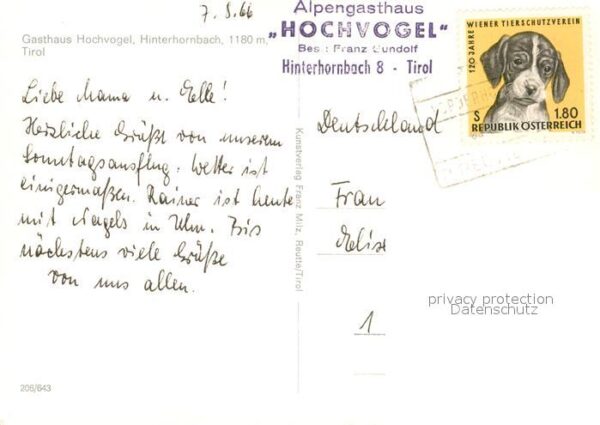 7. 8. 66
Gasthaus Hochvogel, Hinterhornbach, 1180 m,
Tirol
Alpengasthaus
„HOCHVOGEL"
Bes.: Franz Gundolf
Hinterhornbach 8 - Tirol
120 JAHRE WIENER TIERSCHUTZVEREIN
S 1.80
REPUBLIK ÖSTERREICH
Liebe Mama u. Elle!
Herzliche Grüße von unserem
Sonntagsausflug. Wetter ist
einigermaßen. Rainer ist heute
mit Nagels in Ulm. Bis
nächstens viele Grüße
von uns allen.
Kunstverlag Franz Milz, Reutte/Tirol
Deutschland
Frau
Elise
1
privacy protection
Datenschutz
205/643